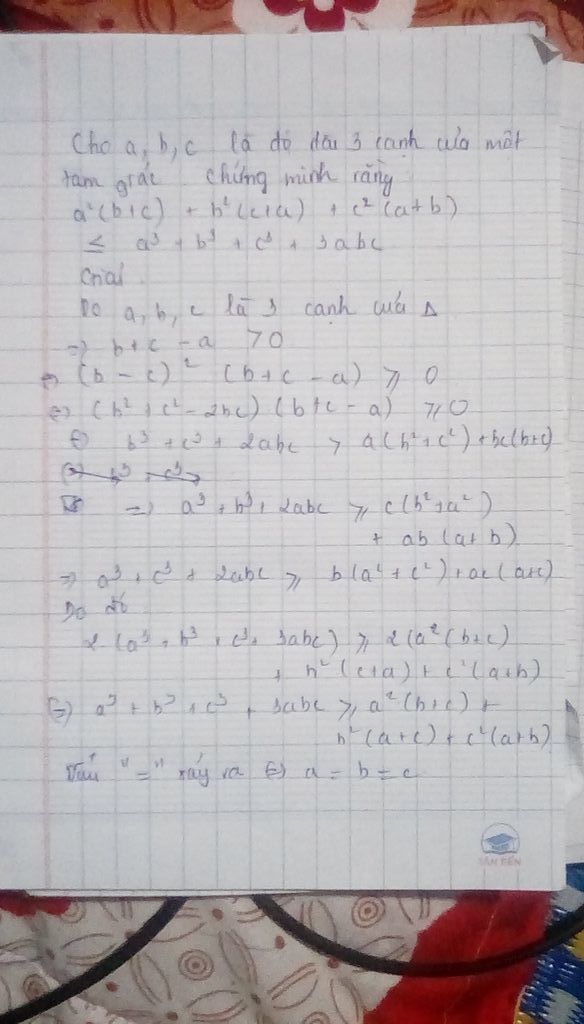 Cho a, b, c là độ dài 3 cạnh của một
tam giác chứng minh rằng
a²(b+c) + b²(c+a) + c²(a+b)
≤ a³ + b³ + c³ + 3abc
Giải
Do a, b, c là 3 cạnh của Δ
=> b+c - a > 0
<=> (b - c)² (b+c - a) ≥ 0
<=> (b² + c² - 2bc) (b+c - a) ≥ 0
<=> b³ + c³ + 2abc ≥ a(b²+c²) + bc(b+c)
=> a³ + b³ + 2abc ≥ c(b²+a²)
+ ab (a+b)
=> a³ + c³ + 2abc ≥ b(a² + c²) + ac(a+c)
Do đó
2 (a³ + b³ + c³ + 3abc) ≥ 2(a²(b+c)
+ b²(c+a) + c²(a+b)
<=> a³ + b³ + c³ + 3abc ≥ a²(b+c) +
b²(a+c) + c²(a+b)
Dấu "=" xảy ra <=> a = b = c